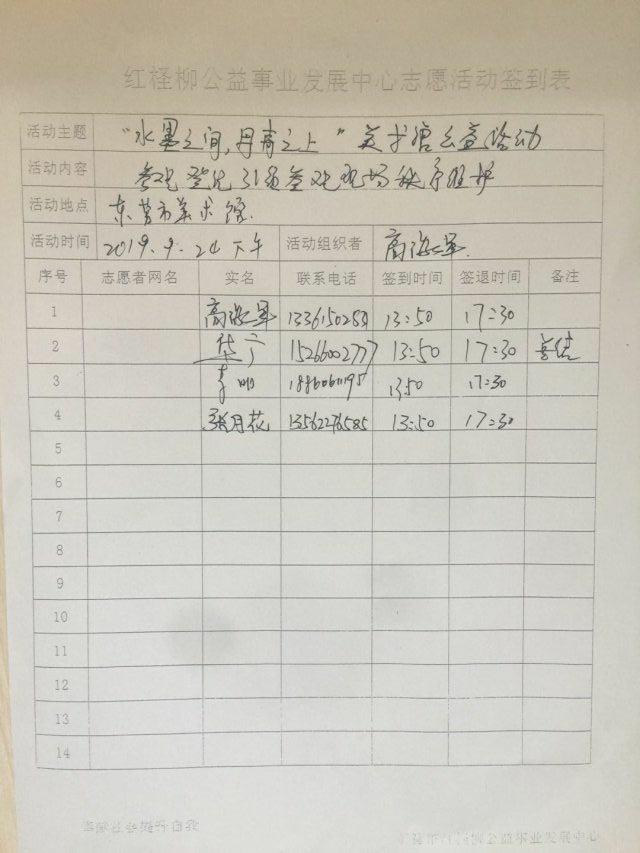 红柽柳公益事业发展中心志愿活动签到表
活动主题 “水墨之间,丹青之上”美术馆公益活动
活动内容 参观登记引导参观现场秩序维护
活动地点 东营市美术馆.
活动时间 2019.9.24 下午 活动组织者 高海军.
序号 志愿者网名 实名 联系电话 签到时间 签退时间 备注
1 高海军 13:50 17:30
2 华广 15266002777 13:50 17:30
3 1350 17:30
4 张月花 13562276585 13:50 17:30
5
6
7
8
9
10
11
12
13
14